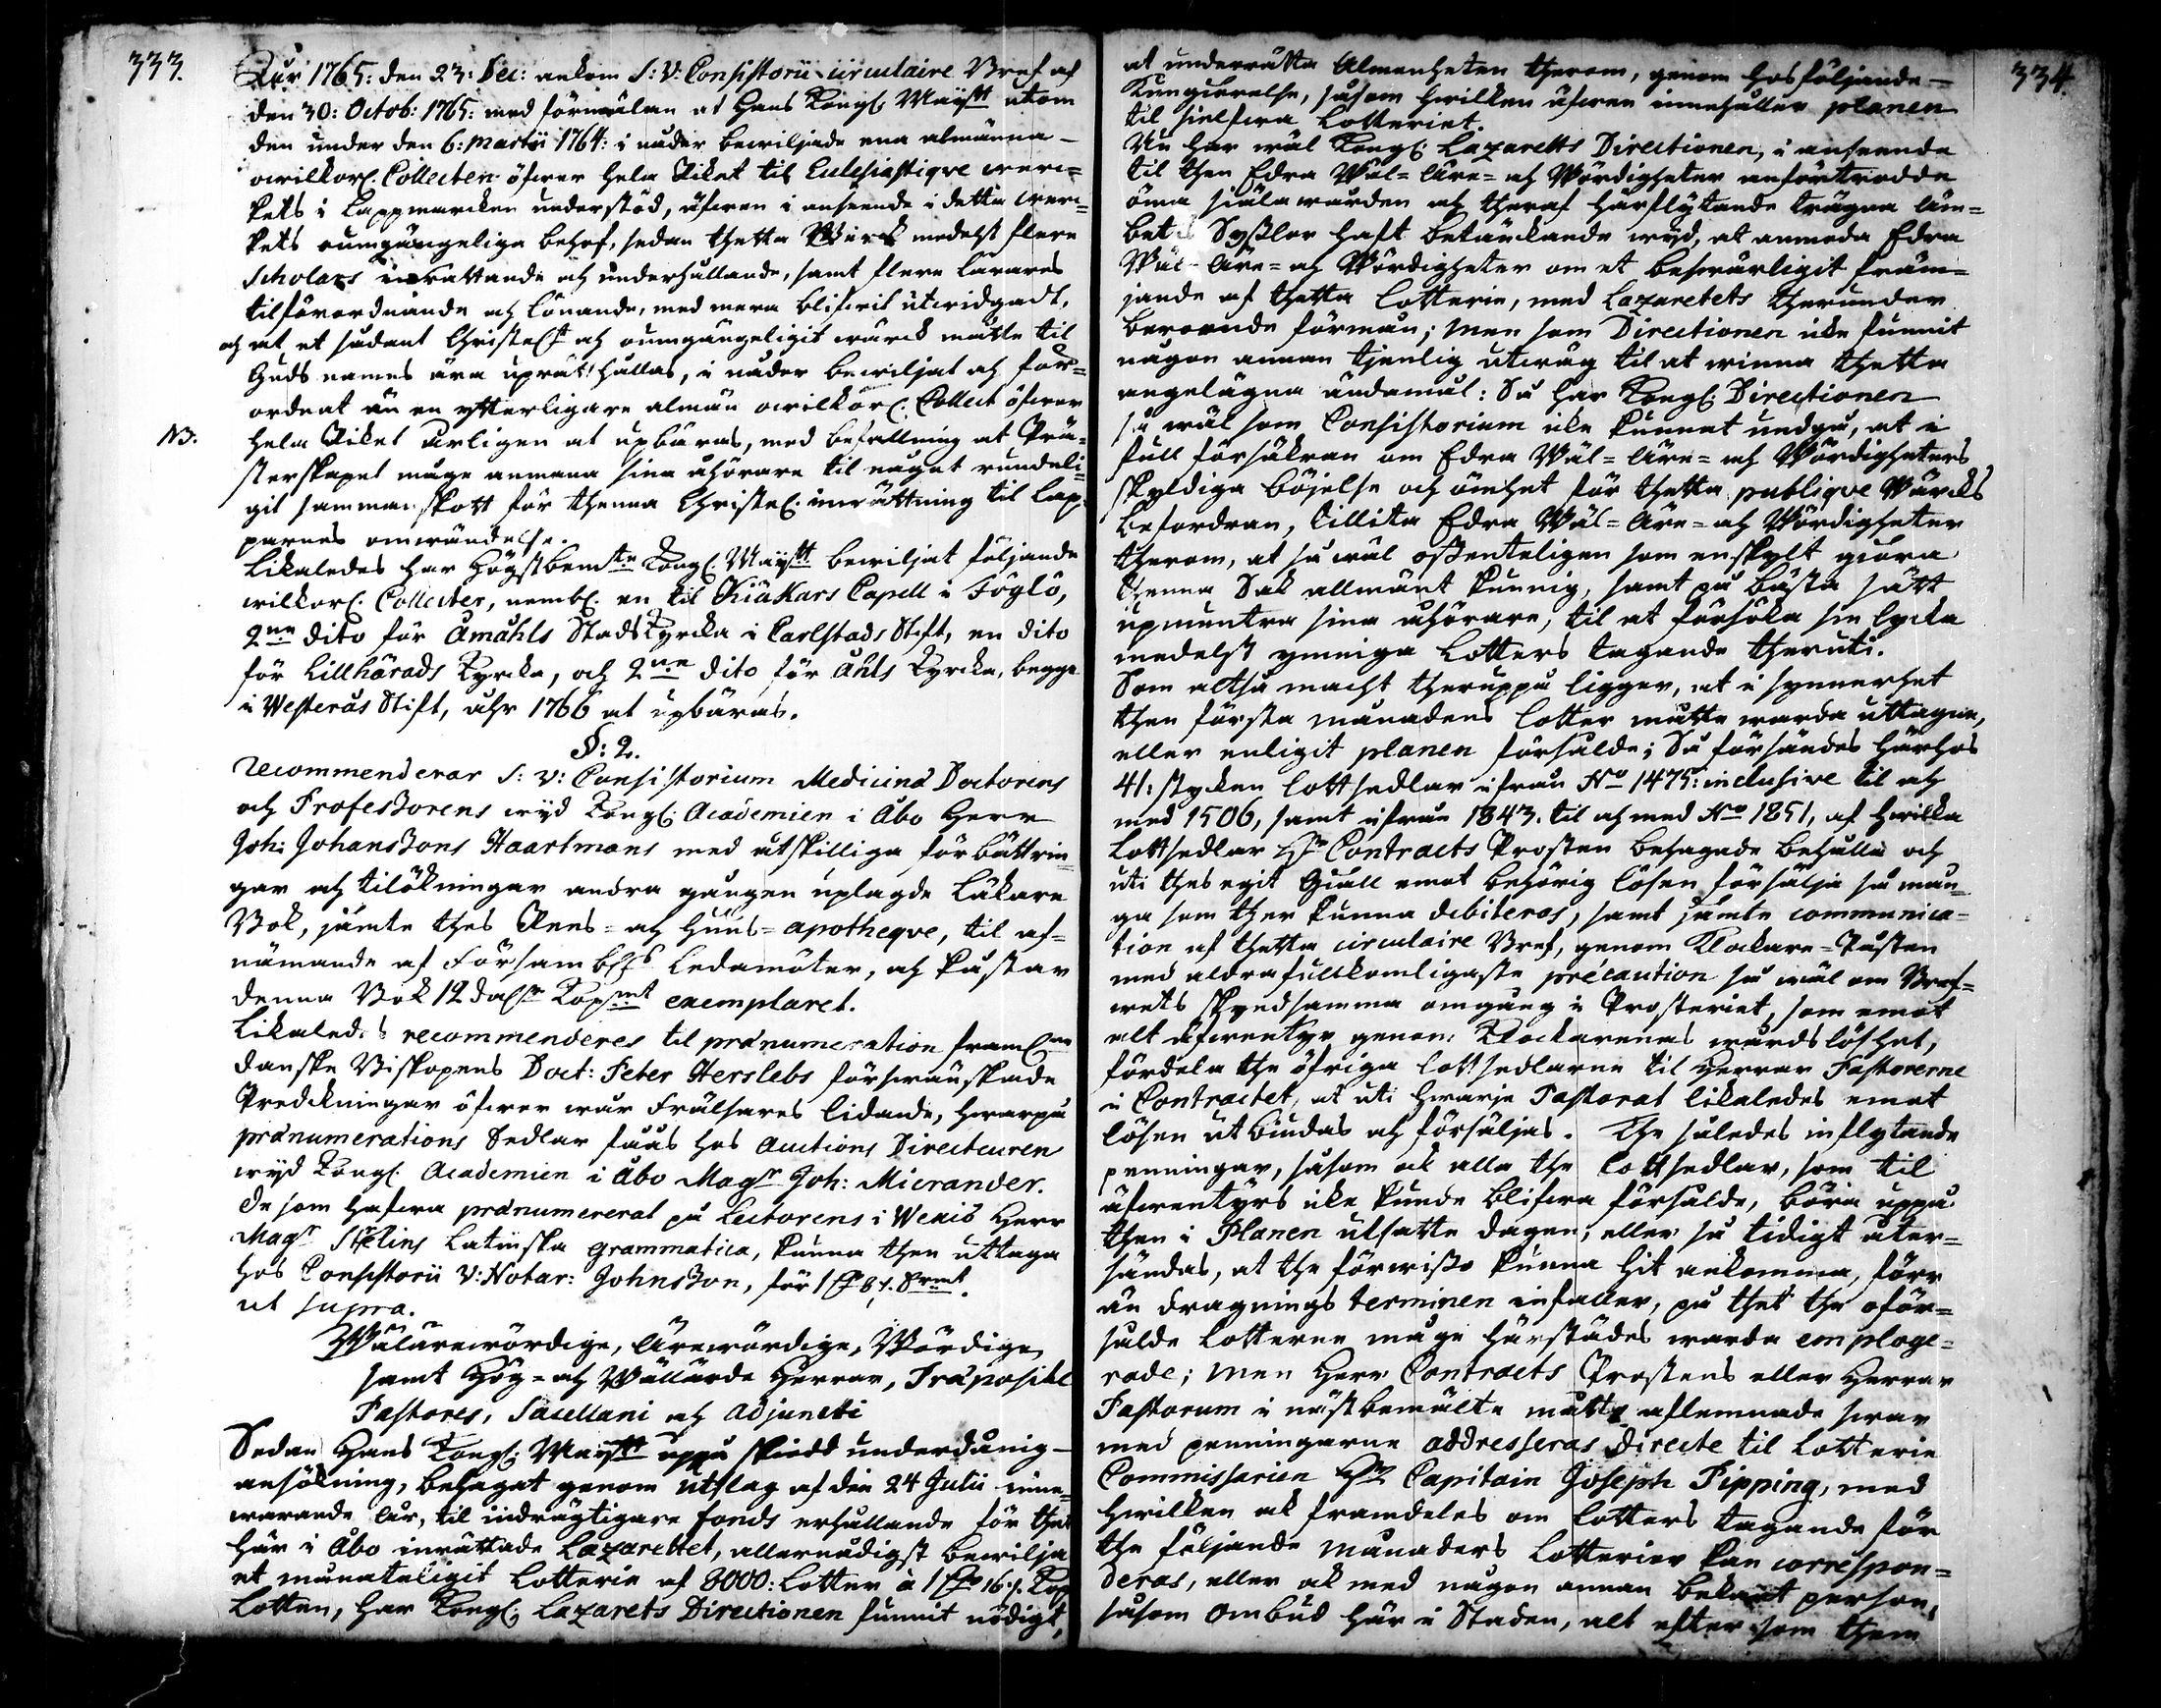 333.
Åhr 1765: den 23: Dec: ankom S: V: Consistorii circulaire Bref af
den 30: Octob: 1765: med förmälan at Hans Kongl: Maÿstt utom
den under den 6: Martii 1764: i nåder bewiljade ena almänna
owilkorl: Collecten öfwer hela Riket til Ecclesiastiqve werc=
kets i Lappmarcken understöd, äfwen i anseende i detta werc=
kets oumgängeliga behof, sedan thetta Wärck medelst flere
Scholars inrättande och underhållande, samt flere Lärares
tilförordnande och lönande, med mera blifwit utwidgadt,
och at et sådant Christel:t och oumgängeligit wärck måtte til
Guds namns ära uprätthållas, i nåder bewiljat och för=
ordnat än en ytterligare almän owilkorl: Collect öfwer
NB. hela Riket årligen at upbäras, med befallning at Prä=
sterskapet måge anmana sina åhörare til något rundeli=
git sammanskott för thenna Christel: inrättning til Lap=
parnes omwändelse.
Likaledes har Högstbemte Kongl: Maÿstt bewiljat följande
wilkorl: Collecter, nembl: en til Kiökars Capell i Föglö,
2ne dito för Åmåhls Stads Kyrcka i Carlstads Stift, en dito
för Lillhärads Kyrcka, och 2ne dito för Åhls Kyrcka, begge
i Westerås Stift, åhr 1766 at upbäras.
§: 2.
Recommenderar S: V: Consistorium Medicinæ Doctorens
och Professorens wid Kongl: Academien i Åbo Herr
Joh: Johanssons Haartmans med åtskilliga förbättrin=
gar och tilökningar andra gången uplagde Läkare
Bok, jämte thes Rees= och Huus=apotheqve, til af=
nämande af Församblgs Ledamöter, och kåstar
denna Bok 12 dalr Kopmt exemplaret.
Likaledes recommenderes til prænumeration framl:ne
danske Biskopens Doct: Peter Herslebs förswänskade
Predikningar öfwer wår Frälsares lidande, hwarpå
prænumerations Sedlar fåås hos Auctions Directeuren
wid Kongl: Academien i Åbo Magr Joh: Micrander.
De som hafwa prænumererat på Lectorens i Wexiö Herr
Magr Ströelins Latinska Grammatica, kunna then uttaga
hos Consistorii V: Notar: Johnsson, för 1 dr 8 /. Srmt.
ut supra.
Wälärewördige, Ärewördige, Wördige,
samt Hög= och Wällärde Herrar, Præposite
Pastores, Sacellani och Adjuncti
Sedan Hans Kongl: Maÿstt uppå skiedd underdånig
ansökning, behagat genom utslag af den 24 Julii inne=
warande åhr, til indrägtigare fonds erhållande för thet
här i Åbo inrättade Lazarettet, allernådigst bewilja
et månateligit Lotterie af 8000: Lotter à 1 dr 16 /. Kop
Lotten, har Kongl: Lazarets Directionen funnit nödigt,
334.
at underrätta Almenheten therom, genom hosföljande
Kungiörelse, såsom hwilken äfwen innehåller planen
til sielfwa Lotteriet.
Nu har wäl Kongl: Lazaretts Directionen, i anseende
til then Edra Wäl= Äre= och Wördigheter anförtrodde
öma siälawården och theraf härflytande trägna äm=
bets Sysslor haft betänckande wid, at anmoda Edra
Wäl= Äre= och Wördigheter om et beswärligit främ=
jande af thetta Lotterie, med Lazaretets therunder
beroende förmån; Men som Directionen icke funnit
någon annan tjenlig utwäg til at winna thetta
angelägna ändamål: Så har Kongl: Directionen
så wäl som Consistorium icke kunnat undgå, at i
full försäkran om Edra Wäl= Äre= och Wördigheters
skyldiga böjelse och ömhet för thetta publiqve Wärcks
befordran, tillita Edra Wäl= Äre= och Wördigheter
therom, at så wäl offenteligen som enskylt giöra
thenna Sak allmänt kunnig, samt på bästa sätt
upmuntra sina åhörare, til at försöka sin lycka
medelst ymniga Lotters tagande theruti.
Som altså macht theruppå ligger, at i synnerhet
then första månadens lotter måtte warda uttagne,
eller enligit planen försålde; Så försändes härhos
41: stycken lottsedlar ifrån No 1475: inclusive til och
med 1506, samt ifrån 1843. til och med No 1851, af hwilka
Lottsedlar Hr Contracts Prosten behagade behålla och
uti thes egit Giäll emot behörig lösen försälja så mån=
ga som ther kunna debiteras, samt jämte communica=
tion af thetta circulaire Bref, genom Klockare=Påsten
med aldrafullkomligaste précaution så wäl om Bref=
wets skyndsamma omgång i Prosteriet, som emot
alt äfwentyr genom Klockarenas wårdslöshet,
fördela the öfriga lottsedlarne til Herrar Pastorerne
i Contractet, at uti hwarje Pastorat likaledes emot
lösen utbiudas och försäljas. The således inflytande
penningar, såsom ock alla the Lottsedlar, som til
äfwentyrs icke kunde blifwa försålde, böra uppå
then i Planen utsatte dagen, eller så tidigt åter=
sändas, at the förwisso kunna hit ankomma, förr
än dragnings terminen infaller, på thet the oför=
sålde Lotterne måge härstädes warda employe=
rade; Men Herr Contracts Prostens eller Herrar
Pastorum i nästbemälte måtto aflemnade swar
med penningarne addresseras directe til Lotterie
Commissarien Hr Capitain Joseph Pipping, med
hwilken ock framdeles om Lotters tagande för
the följande månaders Lotterier kan correspon=
deras, eller ock med någon annan bekant person,
såsom ombud här i Staden, alt efter som them